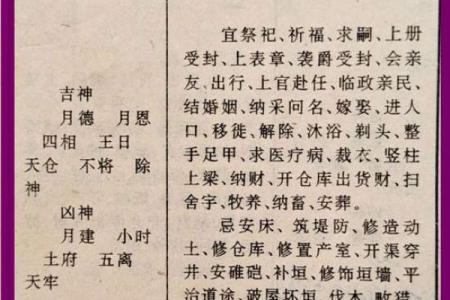 吉神
月德 月恩
四相 王日
天仓 不将 除
神
凶神
月建 小时
土府 五离
天牢
宜祭祀、祈福、求嗣、上册
受封、上表章、袭爵受封、会亲
友、出行、上官赴任、临政亲民、
结婚姻、纳采问名、嫁娶、进人
口、移徙、解除、沐浴、剃头、整
手足甲、求医疗病、裁衣、竖柱
上梁、纳财、开仓库出货财、扫
舍宇、牧养、纳畜、安葬。
忌安床、筑堤防、修造动
土、修仓库、修置产室、开渠穿
井、安碓硙、补垣、修饰垣墙、平
治道途、破屋坏垣、伐木、畋猎